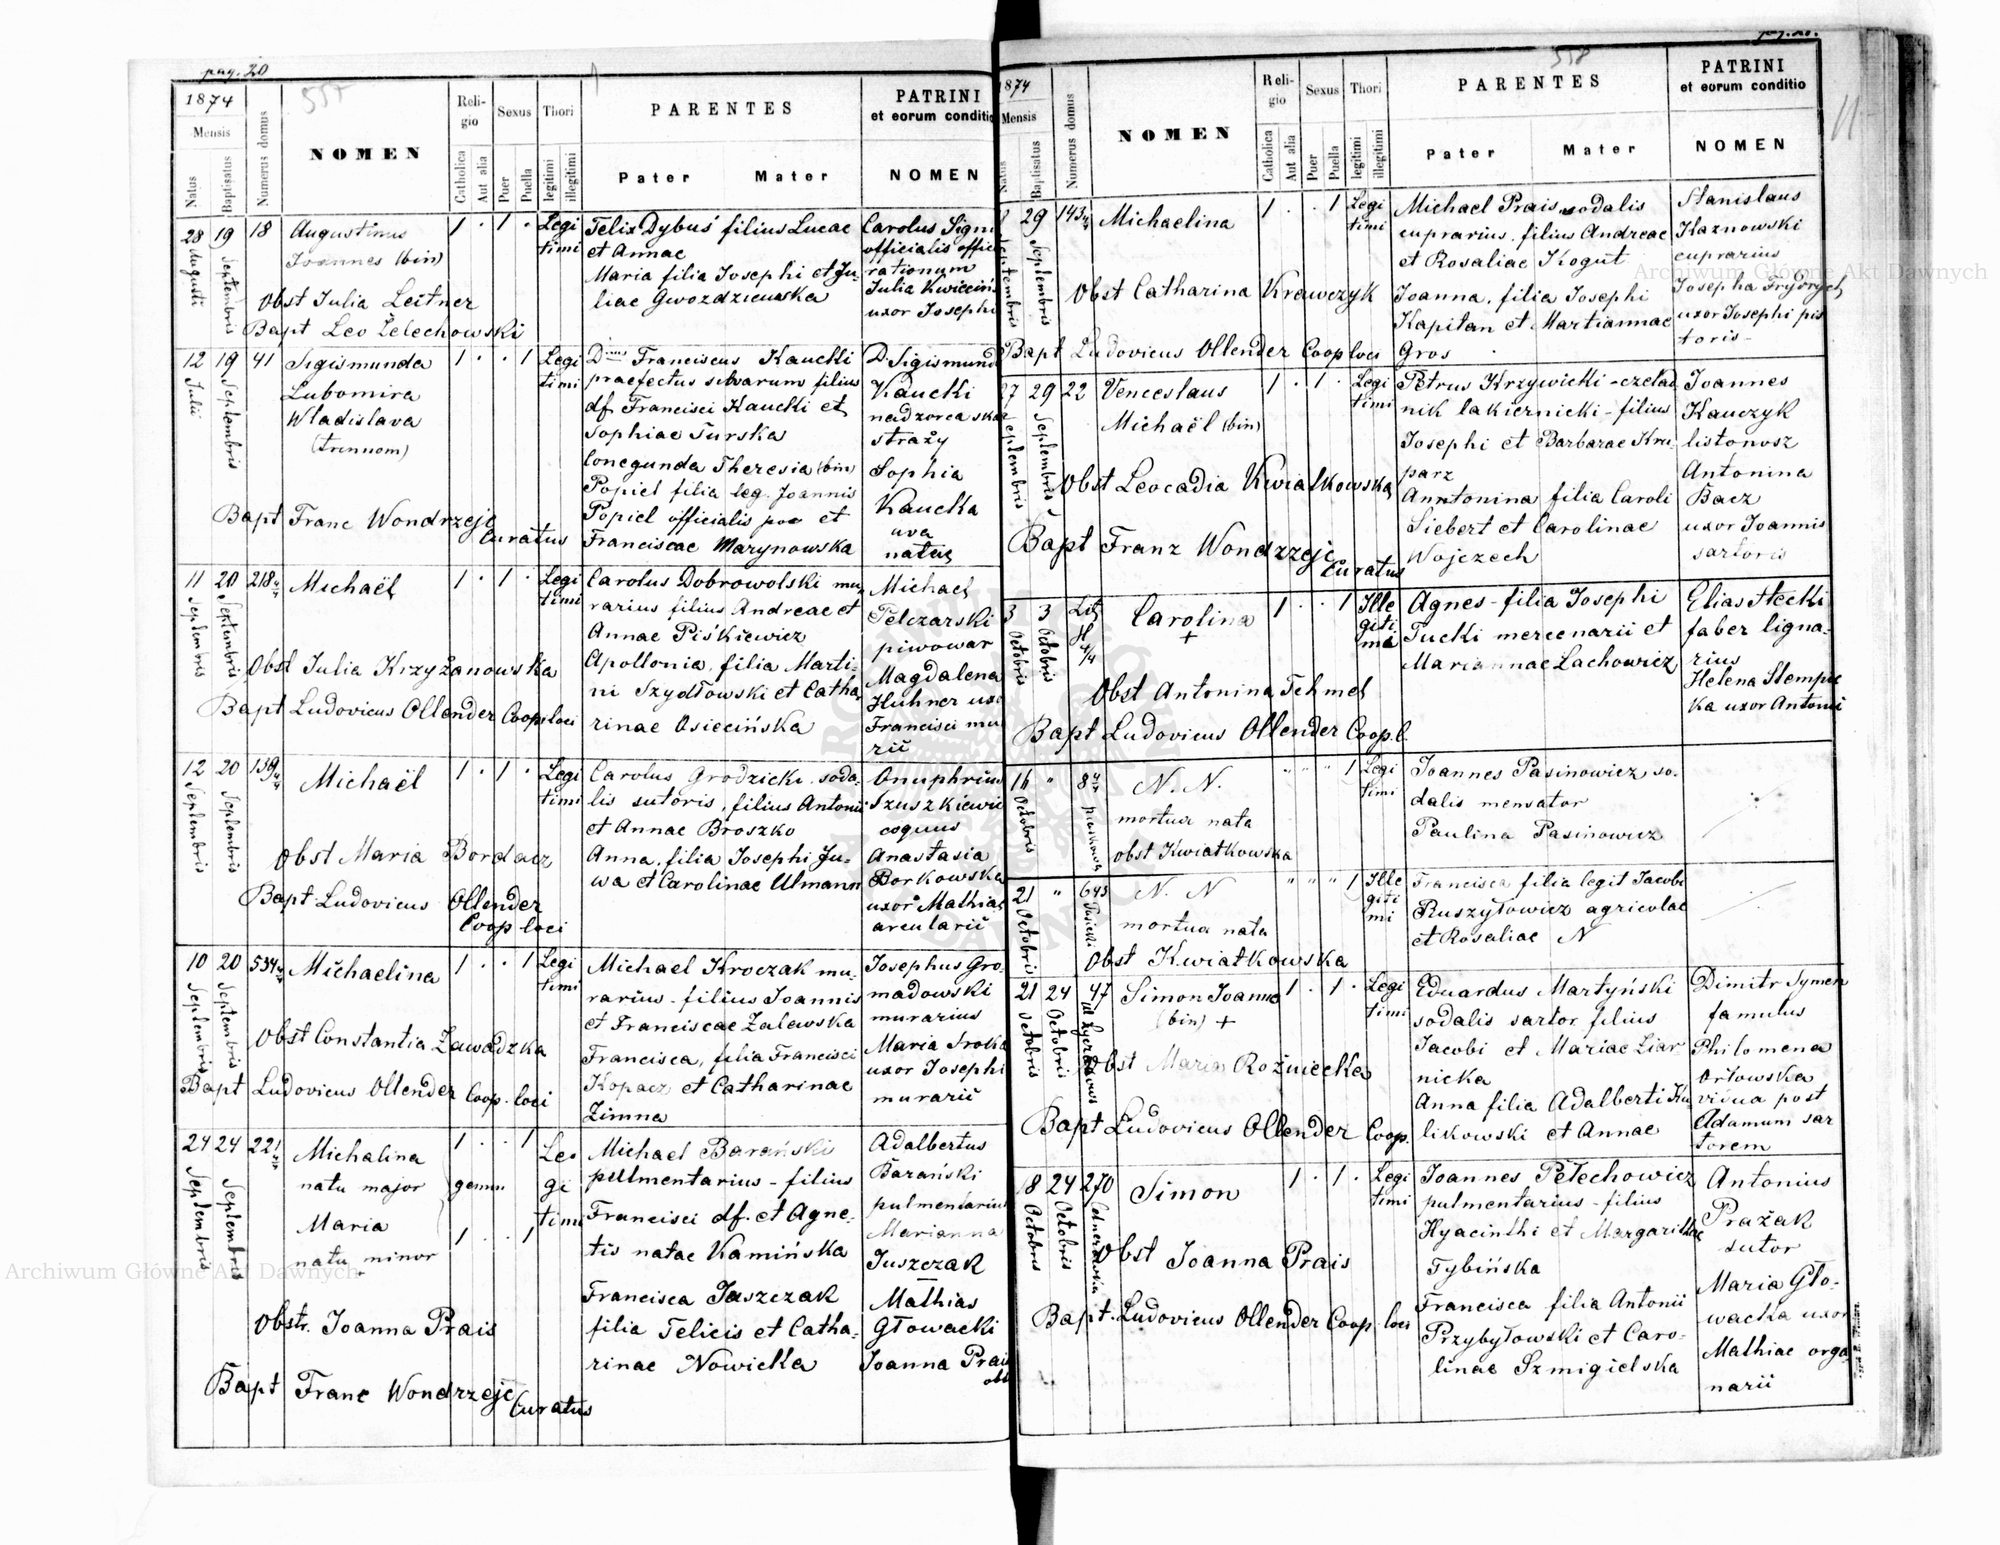 pag. 20
557
1874
Mensis
Natus
Baptisatus
Numerus domus
NOMEN
Religio
Catholica
Aut alia
Sexus
Puer
Puella
Thori
legitimi
illegitimi
PARENTES
Pater
Mater
PATRINI
et eorum conditio
NOMEN
28 Augusti
19 Septembris
18
Augustinus
Joannes (bin)
Obst Julia Leitner
Bapt Leo Żelechowski
1 . 1 .
Legi
timi
Felix Dybuś filius Lucae
et Annae
Maria filia Josephi et Ju-
liae Gwozdziewska
Carolus Signi
officialis offic
rationum
Julia Kwiecińs
uxor Josephi
12 Julii
19 Septembris
41
Sigismunda
Lubomira
Wladislava
(trinnom)
Bapt Franc Wondrzejc
Curatus
1 . . 1
Legi
timi
Franciscus Kaucki
praefectus silvarum filius
df. Francisci Kaucki et
Sophiae Turska
Conegunda Theresia (bin)
Popiel filia leg. Joannis
Popiel officialis poc et
Franciscae Marynowska
D. Sigismund
Kaucki
nadzorca skar
straży
Sophia
Kaucka
ava
natae
11 Septembris
20 Septembris
218 4/4
Michaël
Obst Julia Krzyżanowska
Bapt Ludovicus Ollender Coop loci
1 . 1 .
Legi
timi
Carolus Dobrowolski mu-
rarius filius Andreae et
Annae Piśkiewicz
Apollonia, filia Marti-
ni Szydłowski et Catha-
rinae Osiecińska
Michael
Pelczarski
piwowar
Magdalena
Huhner uxo
Francisci mu
rii
12 Septembris
20 Septembris
139 4/4
Michaël
Obst Maria Bordacz
Bapt Ludovicus Ollender
Coop loci
1 . 1 .
Legi
timi
Carolus Grodzicki soda-
lis sutoris, filius Antonii
et Annae Broszko
Anna, filia Josephi Ju-
wa et Carolinae Ulmann
Onuphrius
Szuszkiewic
coquus
Anastasia
Borkowska
uxor Mathiae
arcularii
10 Septembris
20 Septembris
534 4/4
Michaelina
Obst Constantia Zawadzka
Bapt Ludovicus Ollender Coop. loci
1 . . 1
Legi
timi
Michael Kroczak mu-
rarius - filius Joannis
et Franciscae Zalewska
Francisca, filia Francisci
Kopacz et Catharinae
Zimna
Josephus Gro-
madowski
murarius
Maria Sroka
uxor Josephi
murarii
24 Septembris
24 Septembris
221
Michalina
natu major
Maria
natu minor
gemin
Obstr. Joanna Prais
Bapt Franc Wondrzejc
Curatus
1 . . 1
1 . . 1
Le
gi
timi
Michael Barański
pulmentarius - filius
Francisci df. et Agne-
tis natae Kamińska
Francisca Juszczak
filia Felicis et Catha-
rinae Nowicka
Adalbertus
Barański
pulmentarius
Marianna
Juszczak
Mathias
Głowacki
Joanna Prais
obst
pag. 20.
558
11
1874
Mensis
Natus
Baptisatus
Numerus domus
NOMEN
Religio
Catholica
Aut alia
Sexus
Puer
Puella
Thori
legitimi
illegitimi
PARENTES
Pater
Mater
PATRINI
et eorum conditio
NOMEN
Septembris
29 Septembris
143 4/4
Michaelina
Obst Catharina Krawczyk
Bapt Ludovicus Ollender Coop loci
1 . . 1
Legi
timi
Michael Prais sodalis
cuprarius, filius Andreae
et Rosaliae Kogut
Joanna, filia Josephi
Kapitan et Martiannae
Gros
Stanislaus
Haznowski
cuprarius
Josepha Frydrych
uxor Josephi pis
toris
27 Septembris
29 Septembris
22
Venceslaus
Michaël (bin)
Obst Leocadia Kwiatkowska
Bapt Franz Wondrzejc
Curatus
1 . 1 .
Legi
timi
Petrus Krzywicki - czelad
nik lakiernicki - filius
Josephi et Barbarae Kru-
parz
Anntonina filia Caroli
Siebert et Carolinae
Wojczech
Joannes
Kauczyk
listonosz
Antonina
Bacz
uxor Joannis
sartoris
3 Octobris
3 Octobris
Lit
H
4/4
Carolina
+
Obst Antonina Tehmel
Bapt Ludovicus Ollender Coop.l.
1 . . 1
Ille
giti
ma
Agnes - filia Josephi
Tucki mercenarii et
Mariannae Lachowicz
Elias Stecki
faber ligna-
rius
Helena Stempec
ka uxor Antonii
16 Octobris
"
8 4/4 piaskowa
N. N.
mortua nata
obst Kwiatkowska
" " " 1
Legi
timi
Joannes Pasinowicz so-
dalis mensator
Paulina Pasinowicz
21 Octobris
"
643 Pasieki
N. N
mortua nata
Obst Kwiatkowska
" " " 1
Ille
giti
mi
Francisca filia legit Jacobi
Ruszyłowicz agricolae
et Rosaliae N
21 Octobris
24 Octobris
47 ul Łyczakows
Simon Joannes
(bin) +
Obst Maria Rożniecka
Bapt Ludovicus Ollender Coop.
1 . 1 .
Legi
timi
Eduardus Martyński
sodalis sartor filius
Jacobi et Mariae Liar
nicka
Anna filia Adalberti Ku
likowski et Annae
Dimitr Symen
famulus
Philomena
Orłowska
vidua post
Adamum sar
torem
18 Octobris
24 Octobris
270 Celnerowka
Simon
Obst Joanna Prais
Bapt. Ludovicus Ollender Coop loci
1 . 1 .
Legi
timi
Joannes Petechowicz
pulmentarius - filius
Hyacinthi et Margarithae
Tybińska
Francisca filia Antonii
Przybyłowski et Caro-
linae Szmigielska
Antonius
Prażak
sutor
Maria Gło-
wacka uxor
Mathiae orga
narii
Archiwum Główne Akt Dawnych
Archiwum Główne Akt Dawnych